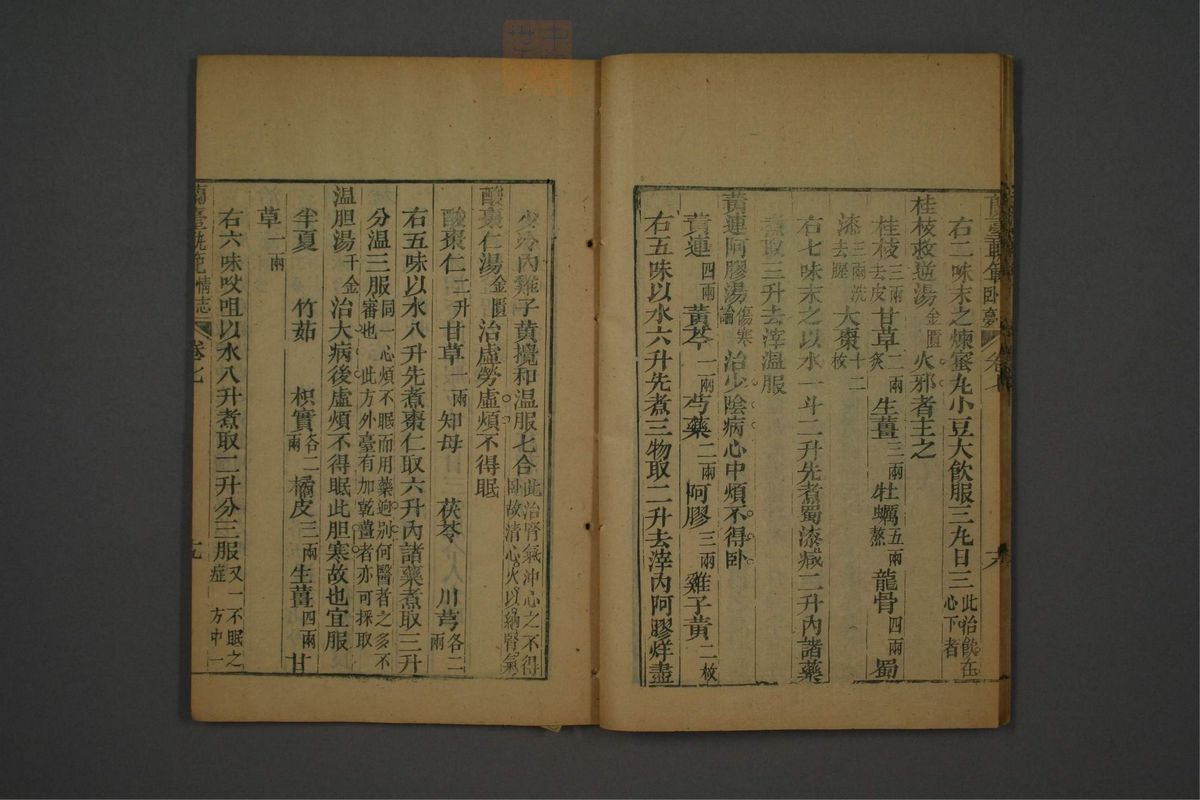 右二味末之煉蜜丸小豆大飲服三丸日三此治飲在心下者
桂枝救逆湯金匱火邪者主之
桂枝三兩去皮甘草二兩炙生薑三兩牡蠣五兩熬龍骨四兩蜀
漆三兩洗去腥大棗十二枚
右七味末之以水一斗二升先煮蜀漆減二升內諸藥
煮取三升去滓溫服
黃連阿膠湯傷寒論治少陰病心中煩不得卧
黃連四兩黃芩一兩芍藥二兩阿膠三兩雞子黃二枚
右五味以水六升先煮三物取二升去滓內阿膠烊盡
少冷內雞子黃攪和溫服七合此治腎氣沖心之不得卧故清心火以納腎氣
酸棗仁湯金匱治虛勞虛煩不得眠
酸棗仁二升甘草一兩知母 茯苓 川芎各二兩
右五味以水八升先煮棗仁取六升內諸藥煮取三升
分溫三服同一心煩不眠而用藥迥別何醫者之多不審也 此方外臺有加乾薑者亦可採取
溫胆湯千金治大病後虛煩不得眠此胆寒故也宜服
半夏 竹茹 枳實各二兩橘皮三兩生薑四兩甘
草一兩
右六味㕮咀以水八升煮取二升分三服又一不眠之症 方中一
蘭臺軌範情志 卷七